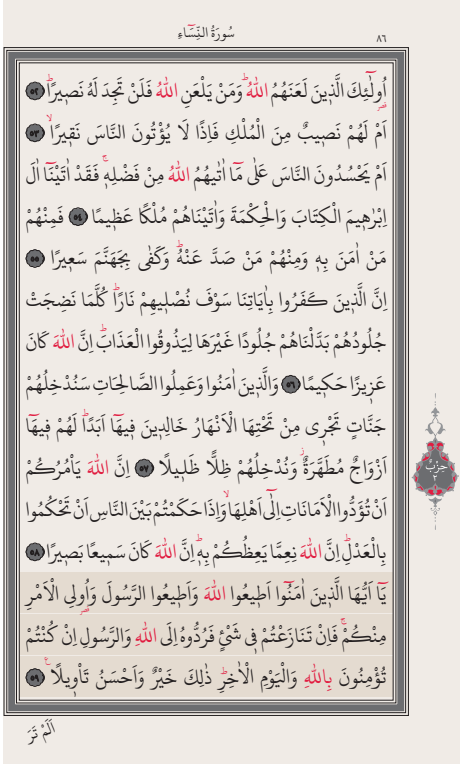 سُورَةُ النِّسَٓاءِ
٨٦
اُو۬لٰٓئِكَ الَّذ۪ينَ لَعَنَهُمُ اللّٰهُۜ وَمَنْ يَلْعَنِ اللّٰهُ فَلَنْ تَجِدَ لَهُ نَص۪يرًاۜ ﴿٥٢﴾
اَمْ لَهُمْ نَص۪يبٌ مِنَ الْمُلْكِ فَاِذًا لَا يُؤْتُونَ النَّاسَ نَق۪يرًاۙ ﴿٥٣﴾
اَمْ يَحْسُدُونَ النَّاسَ عَلٰى مَٓا اٰتٰيهُمُ اللّٰهُ مِنْ فَضْلِه۪ۚ فَقَدْ اٰتَيْنَٓا اٰلَ
اِبْرٰه۪يمَ الْكِتَابَ وَالْحِكْمَةَ وَاٰتَيْنَاهُمْ مُلْكًا عَظ۪يمًا ﴿٥٤﴾ فَمِنْهُمْ
مَنْ اٰمَنَ بِه۪ وَمِنْهُمْ مَنْ صَدَّ عَنْهُۜ وَكَفٰى بِجَهَنَّمَ سَع۪يرًا ﴿٥٥﴾
اِنَّ الَّذ۪ينَ كَفَرُوا بِاٰيَاتِنَا سَوْفَ نُصْل۪يهِمْ نَارًاۜ كُلَّمَا نَضِجَتْ
جُلُودُهُمْ بَدَّلْنَاهُمْ جُلُودًا غَيْرَهَا لِيَذُوقُوا الْعَذَابَۜ اِنَّ اللّٰهَ كَانَ
عَز۪يزًا حَك۪يمًا ﴿٥٦﴾ وَالَّذ۪ينَ اٰمَنُوا وَعَمِلُوا الصَّالِحَاتِ سَنُدْخِلُهُمْ
جَنَّاتٍ تَجْر۪ي مِنْ تَحْتِهَا الْاَنْهَارُ خَالِد۪ينَ ف۪يهَٓا اَبَدًاۜ لَهُمْ ف۪يهَٓا
اَزْوَاجٌ مُطَهَّرَةٌۘ وَنُدْخِلُهُمْ ظِلًّا ظَل۪يلًا ﴿٥٧﴾ اِنَّ اللّٰهَ يَأْمُرُكُمْ
اَنْ تُؤَدُّوا الْاَمَانَاتِ اِلٰٓى اَهْلِهَاۙ وَاِذَا حَكَمْتُمْ بَيْنَ النَّاسِ اَنْ تَحْكُمُوا
بِالْعَدْلِۜ اِنَّ اللّٰهَ نِعِمَّا يَعِظُكُمْ بِه۪ۜ اِنَّ اللّٰهَ كَانَ سَم۪يعًا بَص۪يرًا ﴿٥٨﴾
يَٓا اَيُّهَا الَّذ۪ينَ اٰمَنُٓوا اَط۪يعُوا اللّٰهَ وَاَط۪يعُوا الرَّسُولَ وَاُو۬لِي الْاَمْرِ
مِنْكُمْۚ فَاِنْ تَنَازَعْتُمْ ف۪ي شَيْءٍ فَرُدُّوهُ اِلَى اللّٰهِ وَالرَّسُولِ اِنْ كُنْتُمْ
تُؤْمِنُونَ بِاللّٰهِ وَالْيَوْمِ الْاٰخِرِۜ ذٰلِكَ خَيْرٌ وَاَحْسَنُ تَأْو۪يلًا۟ ﴿٥٩﴾
حِزْبٌ
٢
اَلَمْ تَرَ